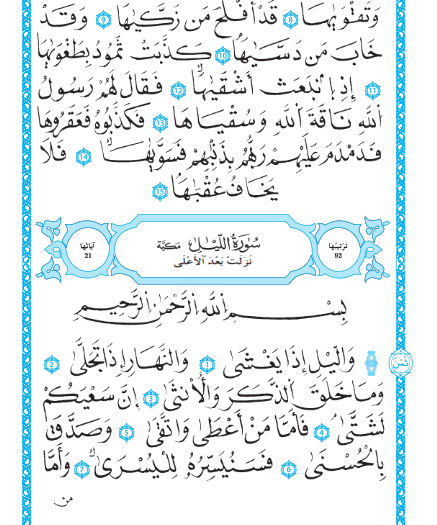 وَتَقْوَىٰهَا 8 قَدَ اَفْلَحَ مَن زَكَّىٰهَا 9 وَقَدْ
خَابَ مَن دَسَّىٰهَا 10 كَذَّبَتْ ثَمُودُ بِطَغْوَىٰهَا
11 إِذِ اِنۢبَعَثَ أَشْقَىٰهَا 12 فَقَالَ لَهُمْ رَسُولُ
اُللَّهِ نَاقَةَ اَللَّهِ وَسُقْيَاهَا 13 فَكَذَّبُوهُ فَعَقَرُوهَا
فَدَمْدَمَ عَلَيْهِمْ رَبُّهُم بِذَنۢبِهِمْ فَسَوَّىٰهَا 14 فَلَا
يَخَافُ عُقْبَٰهَا 15
تَرْتِيبُهَا 92
سُورَةُ اللَّيْلِ مَكِّيَّة
نَزَلَتْ بَعْدَ الْأَعْلَى
آيَاتُهَا 21
بِسْمِ اِللَّهِ اِلرَّحْمَٰنِ اِلرَّحِيمِ
وَالَّيْلِ إِذَا يَغْشَىٰ 1 وَالنَّهَارِ إِذَا تَجَلَّىٰ 2
ثُمُن
وَمَا خَلَقَ اَلذَّكَرَ وَالُانثَىٰ 3 إِنَّ سَعْيَكُمْ
لَشَتَّىٰ 4 فَأَمَّا مَنْ أَعْطَىٰ وَاتَّقَىٰ 5 وَصَدَّقَ
بِالْحُسْنَىٰ 6 فَسَنُيَسِّرُهُ لِلْيُسْرَىٰ 7 وَأَمَّا
مَن